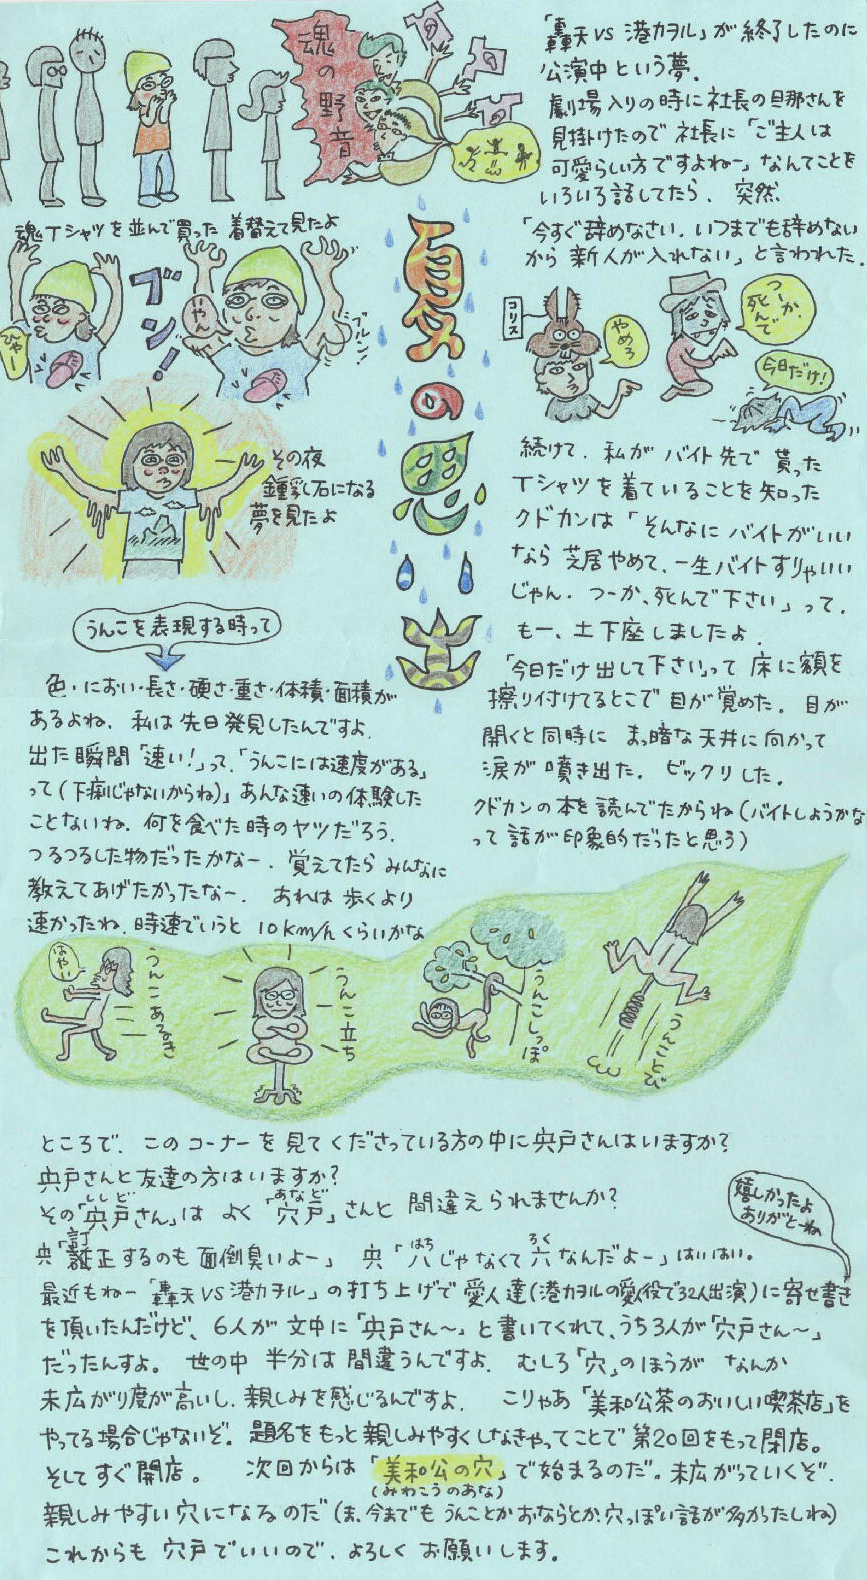 魂の野音
魂Tシャツを並んで買った 着替えて見たよ
ひゃー
ブン!
いやん
ブルン!
その夜
鍾乳石になる
夢を見たよ
夏の思い出
「轟天VS港カヲル」が終了したのに
公演中という夢。
劇場入りの時に社長の旦那さんを
見掛けたので社長に「ご主人は
可愛らしい方ですよねー」なんてことを
いろいろ話してたら、突然、
「今すぐ辞めなさい。いつまでも辞めない
から新人が入れない」と言われた。
コリス
やめろ
つーか、
死んで
今日だけ!
続けて、私がバイト先で貰った
Tシャツを着ていることを知った
クドカンは「そんなにバイトがいい
なら芝居やめて、一生バイトすりゃいい
じゃん。つーか、死んで下さい」って。
もー、土下座しましたよ。
「今日だけ出して下さい」って床に額を
擦り付けてるとこで目が覚めた。目が
開くと同時にまっ暗な天井に向かって
涙が噴き出た。ビックリした。
クドカンの本を読んでたからね(バイトしようかな
って話が印象的だったと思う)
うんこを表現する時って
色・におい・長さ・硬さ・重さ・体積・面積が
あるよね。私は先日発見したんですよ。
出た瞬間「速い!」って、「うんこには速度がある」
って(下痢じゃないからね)」あんな速いの体験した
ことないね。何を食べた時のヤツだろう。
つるつるした物だったかなー。覚えてたらみんなに
教えてあげたかったなー。あれは歩くより
速かったね。時速でいうと10km/hくらいかな
はやい
うんこあるき
うんこ立ち
うんこしっぽ
うんことび
ところで、このコーナーを見てくださっている方の中に宍戸さんはいますか?
宍戸さんと友達の方はいますか?
ししど
あなど
その「宍戸さん」はよく「穴戸」さんと間違えられませんか?
嬉しかったよ
ありがとーね
訂
はち
ろく
央「訂正するのも面倒臭いよー」 央「八じゃなくて六なんだよー」はいはい。
最近もねー「轟天VS港カヲル」の打ち上げで愛人達(港カヲルの愛人役で32人出演)に寄せ書き
を頂いたんだけど、6人が文中に「宍戸さん〜」と書いてくれて、うち3人が「穴戸さん〜」
だったんすよ。世の中半分は間違うんですよ。むしろ「穴」のほうがなんか
末広がり度が高いし、親しみを感じるんですよ。 こりゃあ「美和公茶のおいしい喫茶店」を
やってる場合じゃないぞ。題名をもっと親しみやすくしなきゃってことで第20回をもって閉店。
そしてすぐ開店。 次回からは「美和公の穴」で始まるのだ。末広がっていくぞ。
(みわこうのあな)
親しみやすい穴になるのだ(ま、今までもうんことかおならとか、穴っぽい話が多かったしね)
これからも穴戸でいいので、よろしくお願いします。